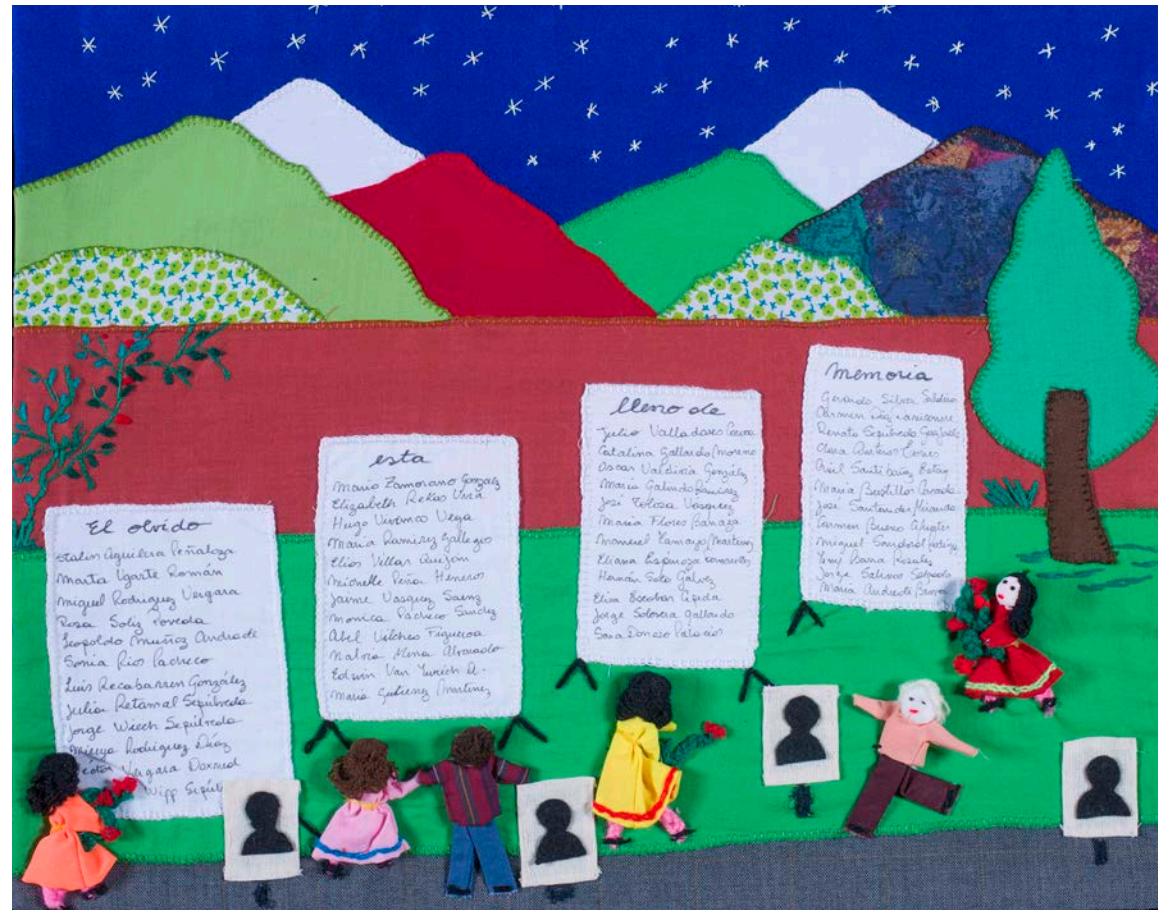 El olvido
Stalin Aguilera Peñaloza
Marta Ugarte Román
Miguel Rodriguez Vergara
Rosa Soliz Poveda
Leopoldo Muñoz Andrade
Sonia Rios Pacheco
Luis Recabarren González
Julia Retamal Sepúlveda
Jorge Wiech Sepúlveda
Mireya Rodríguez Díaz
Vergara Doxrud
Wipp
esta
Mario Zamorano González
Elizabeth Rekas Urra
Hugo Vivanco Vega
Maria Ramirez Gallegio
Elías Villar Quijón
Michelle Peña Herreros
Jaime Vasquez Saenz
Monica Pacheco Sanchez
Abel Vilches Figueroa
Nalvia Mena Alvarado
Edwin Van Yurick A.
Maria Gutierrez Martinez
lleno de
Julio Valladares
Catalina Gallardo Moreno
Oscar Valdivia González
Maria Galindo Ramirez
José Tolosa Vasquez
Maria Flores Baraza
Manuel Tamayo Martinez
Eliana Espinoza
Hernán Soto Gálvez
Elisa Escobar Cepeda
Jorge Solovera Gallardo
Sara Donoso Palacios
memoria
Gerardo Silva Saldivar
Carmen Díaz
Renato Sepúlveda Guajardo
José Santander Miranda
Carmen Bueno Cifuentes
Miguel Sandoval
Jorge Salinas Salgado